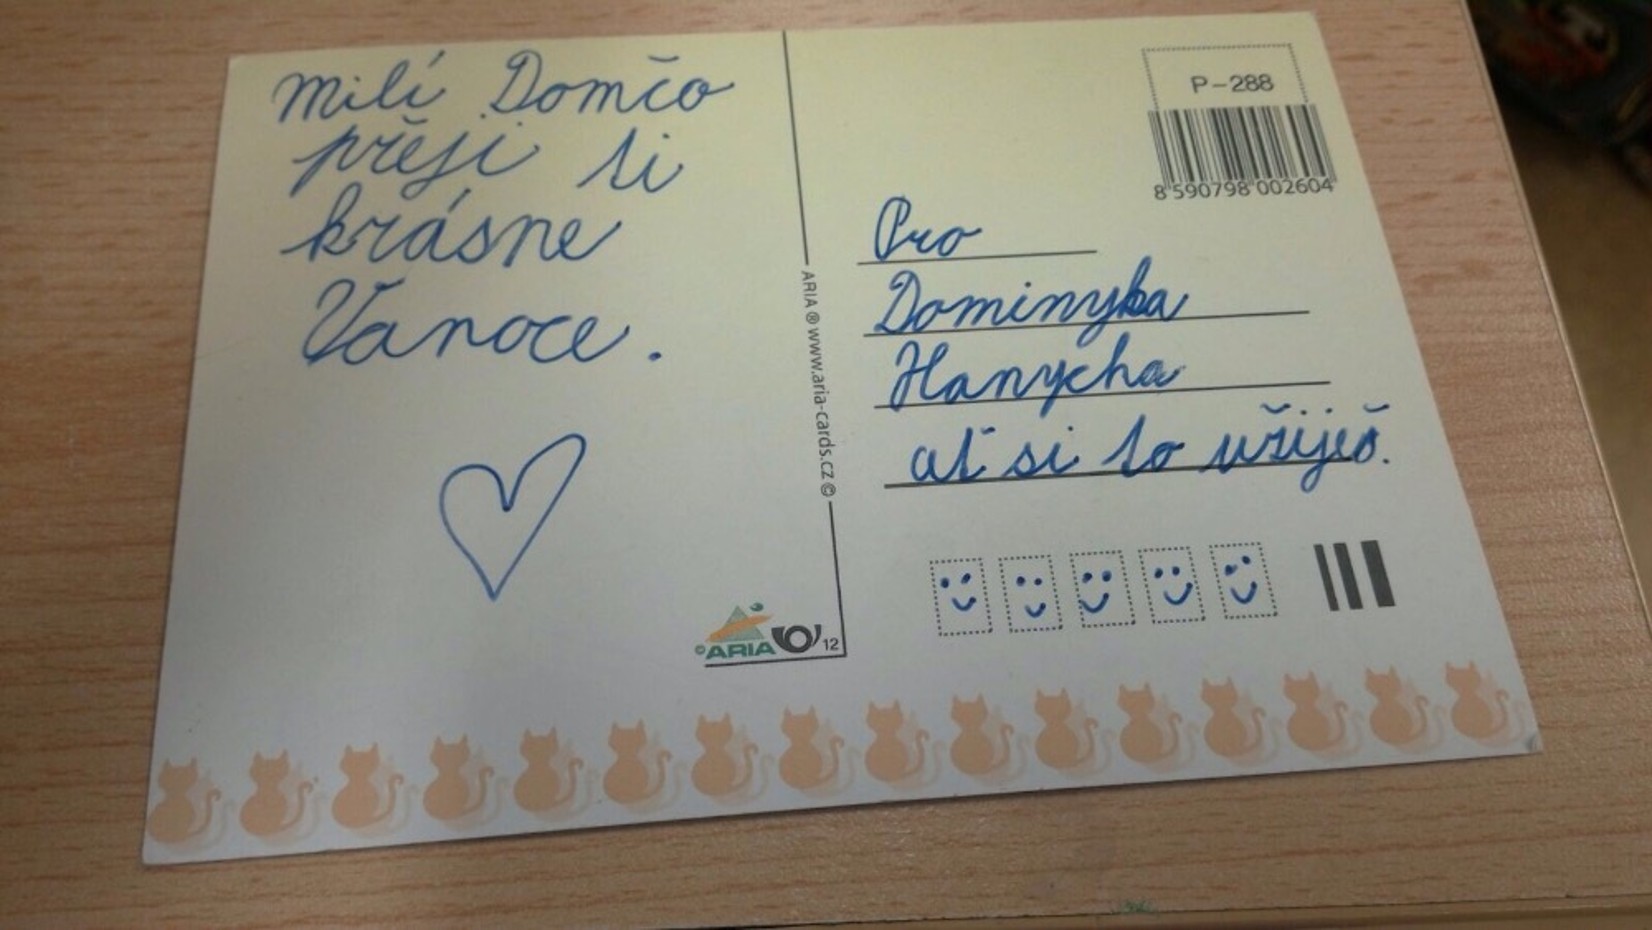 milí Domčo
přeji ti
krásne
Vanoce.
P-288
8 590798 002604
Pro
Dominyka
Hanycha
ať si to užiješ.
ARIA ® www.aria-cards.cz ©
©ARIA 12